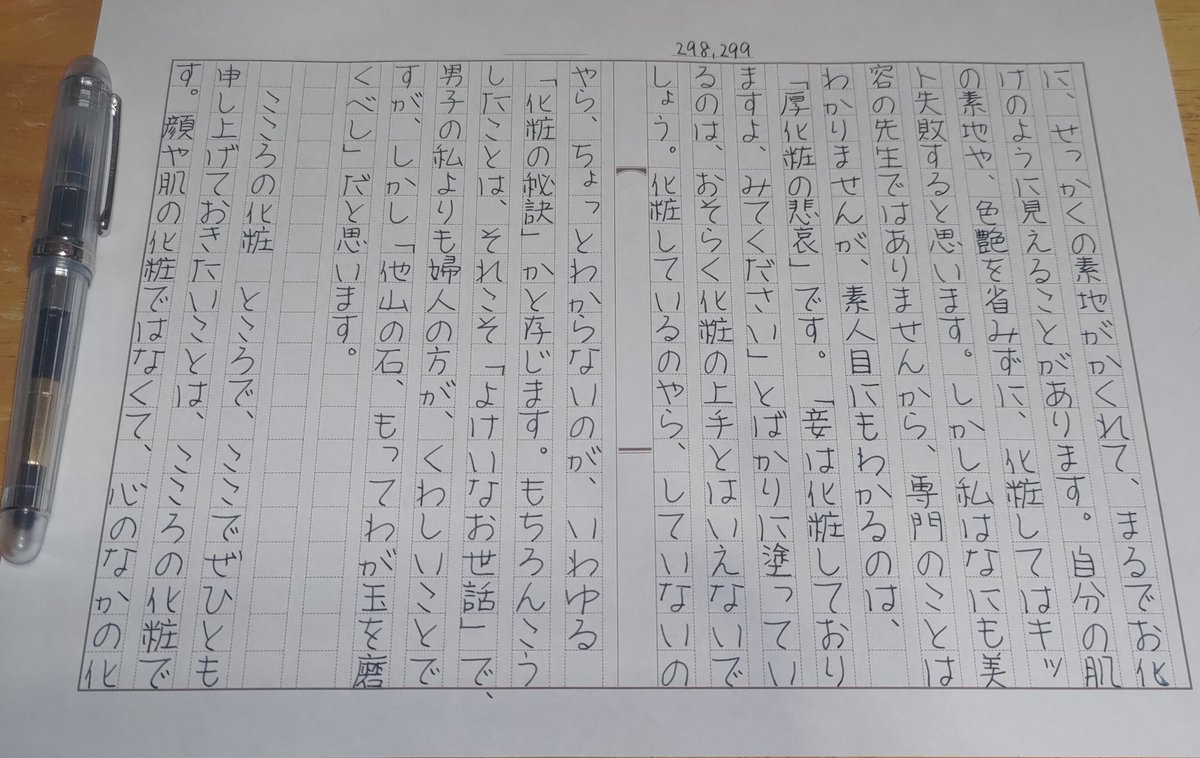 298,299
に、せっかくの素地がかくれて、まるでお化
けのように見えることがあります。自分の肌
の素地や、色艶を省みずに、化粧してはキッ
ト失敗すると思います。しかし私はなにも美
容の先生ではありませんから、専門のことは
わかりませんが、素人目にもわかるのは、
「厚化粧の悲哀」です。「妾は化粧しており
ますよ、みてください」とばかりに塗ってい
るのは、おそらく化粧の上手とはいえないで
しょう。化粧しているのやら、していないの
やら、ちょっとわからないのが、いわゆる
「化粧の秘訣」かと存じます。もちろんこう
したことは、それこそ「よけいなお世話」で、
男子の私よりも婦人の方が、くわしいことで
すが、しかし「他山の石、もってわが玉を磨
くべし」だと思います。
こころの化粧　ところで、ここでぜひとも
申し上げておきたいことは、こころの化粧で
す。顔や肌の化粧ではなくて、心のなかの化